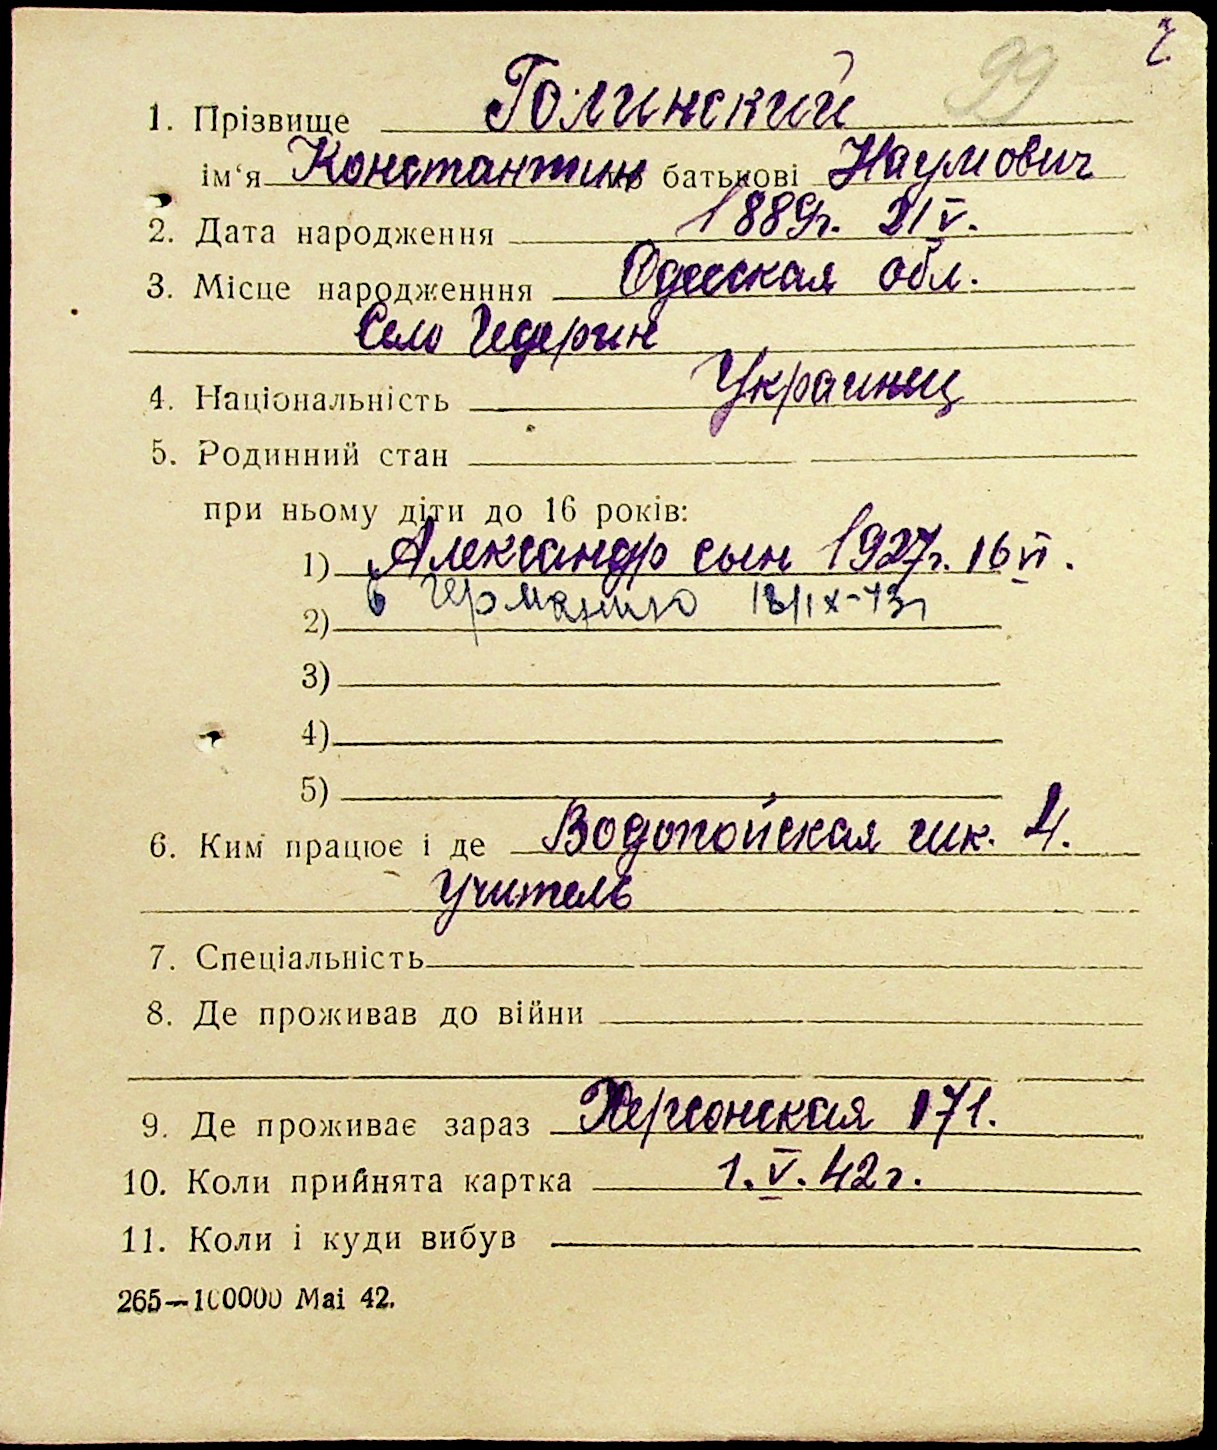 99
1. Прізвище Голинский
ім‘я Константин по батькові Наумович
2. Дата народження 1889г. 21 V.
3. Місце народженння Одесская обл.
Село Чедерин
4. Національність Украинец
5. Родинний стан
при ньому діти до 16 років:
1) Александр сын 1927г. 16 VI.
в Германию 13/IX-43г
2)
3)
4)
5)
6. Ким працює і де Водопойская шк. 4.
учитель
7. Спеціальність
8. Де проживав до війни
9. Де проживає зараз Херсонская 171.
10. Коли прийнята картка 1. V. 42г.
11. Коли і куди вибув
265—100000 Mai 42.